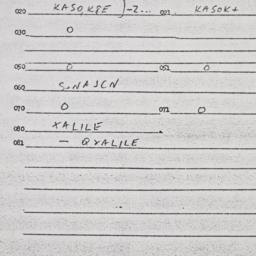 020 KASOKEE 021 KASOK+
030 0
050 0 051 0
060 SONASEN
070 0 071 0
080 XALILE
081 — QXALILE